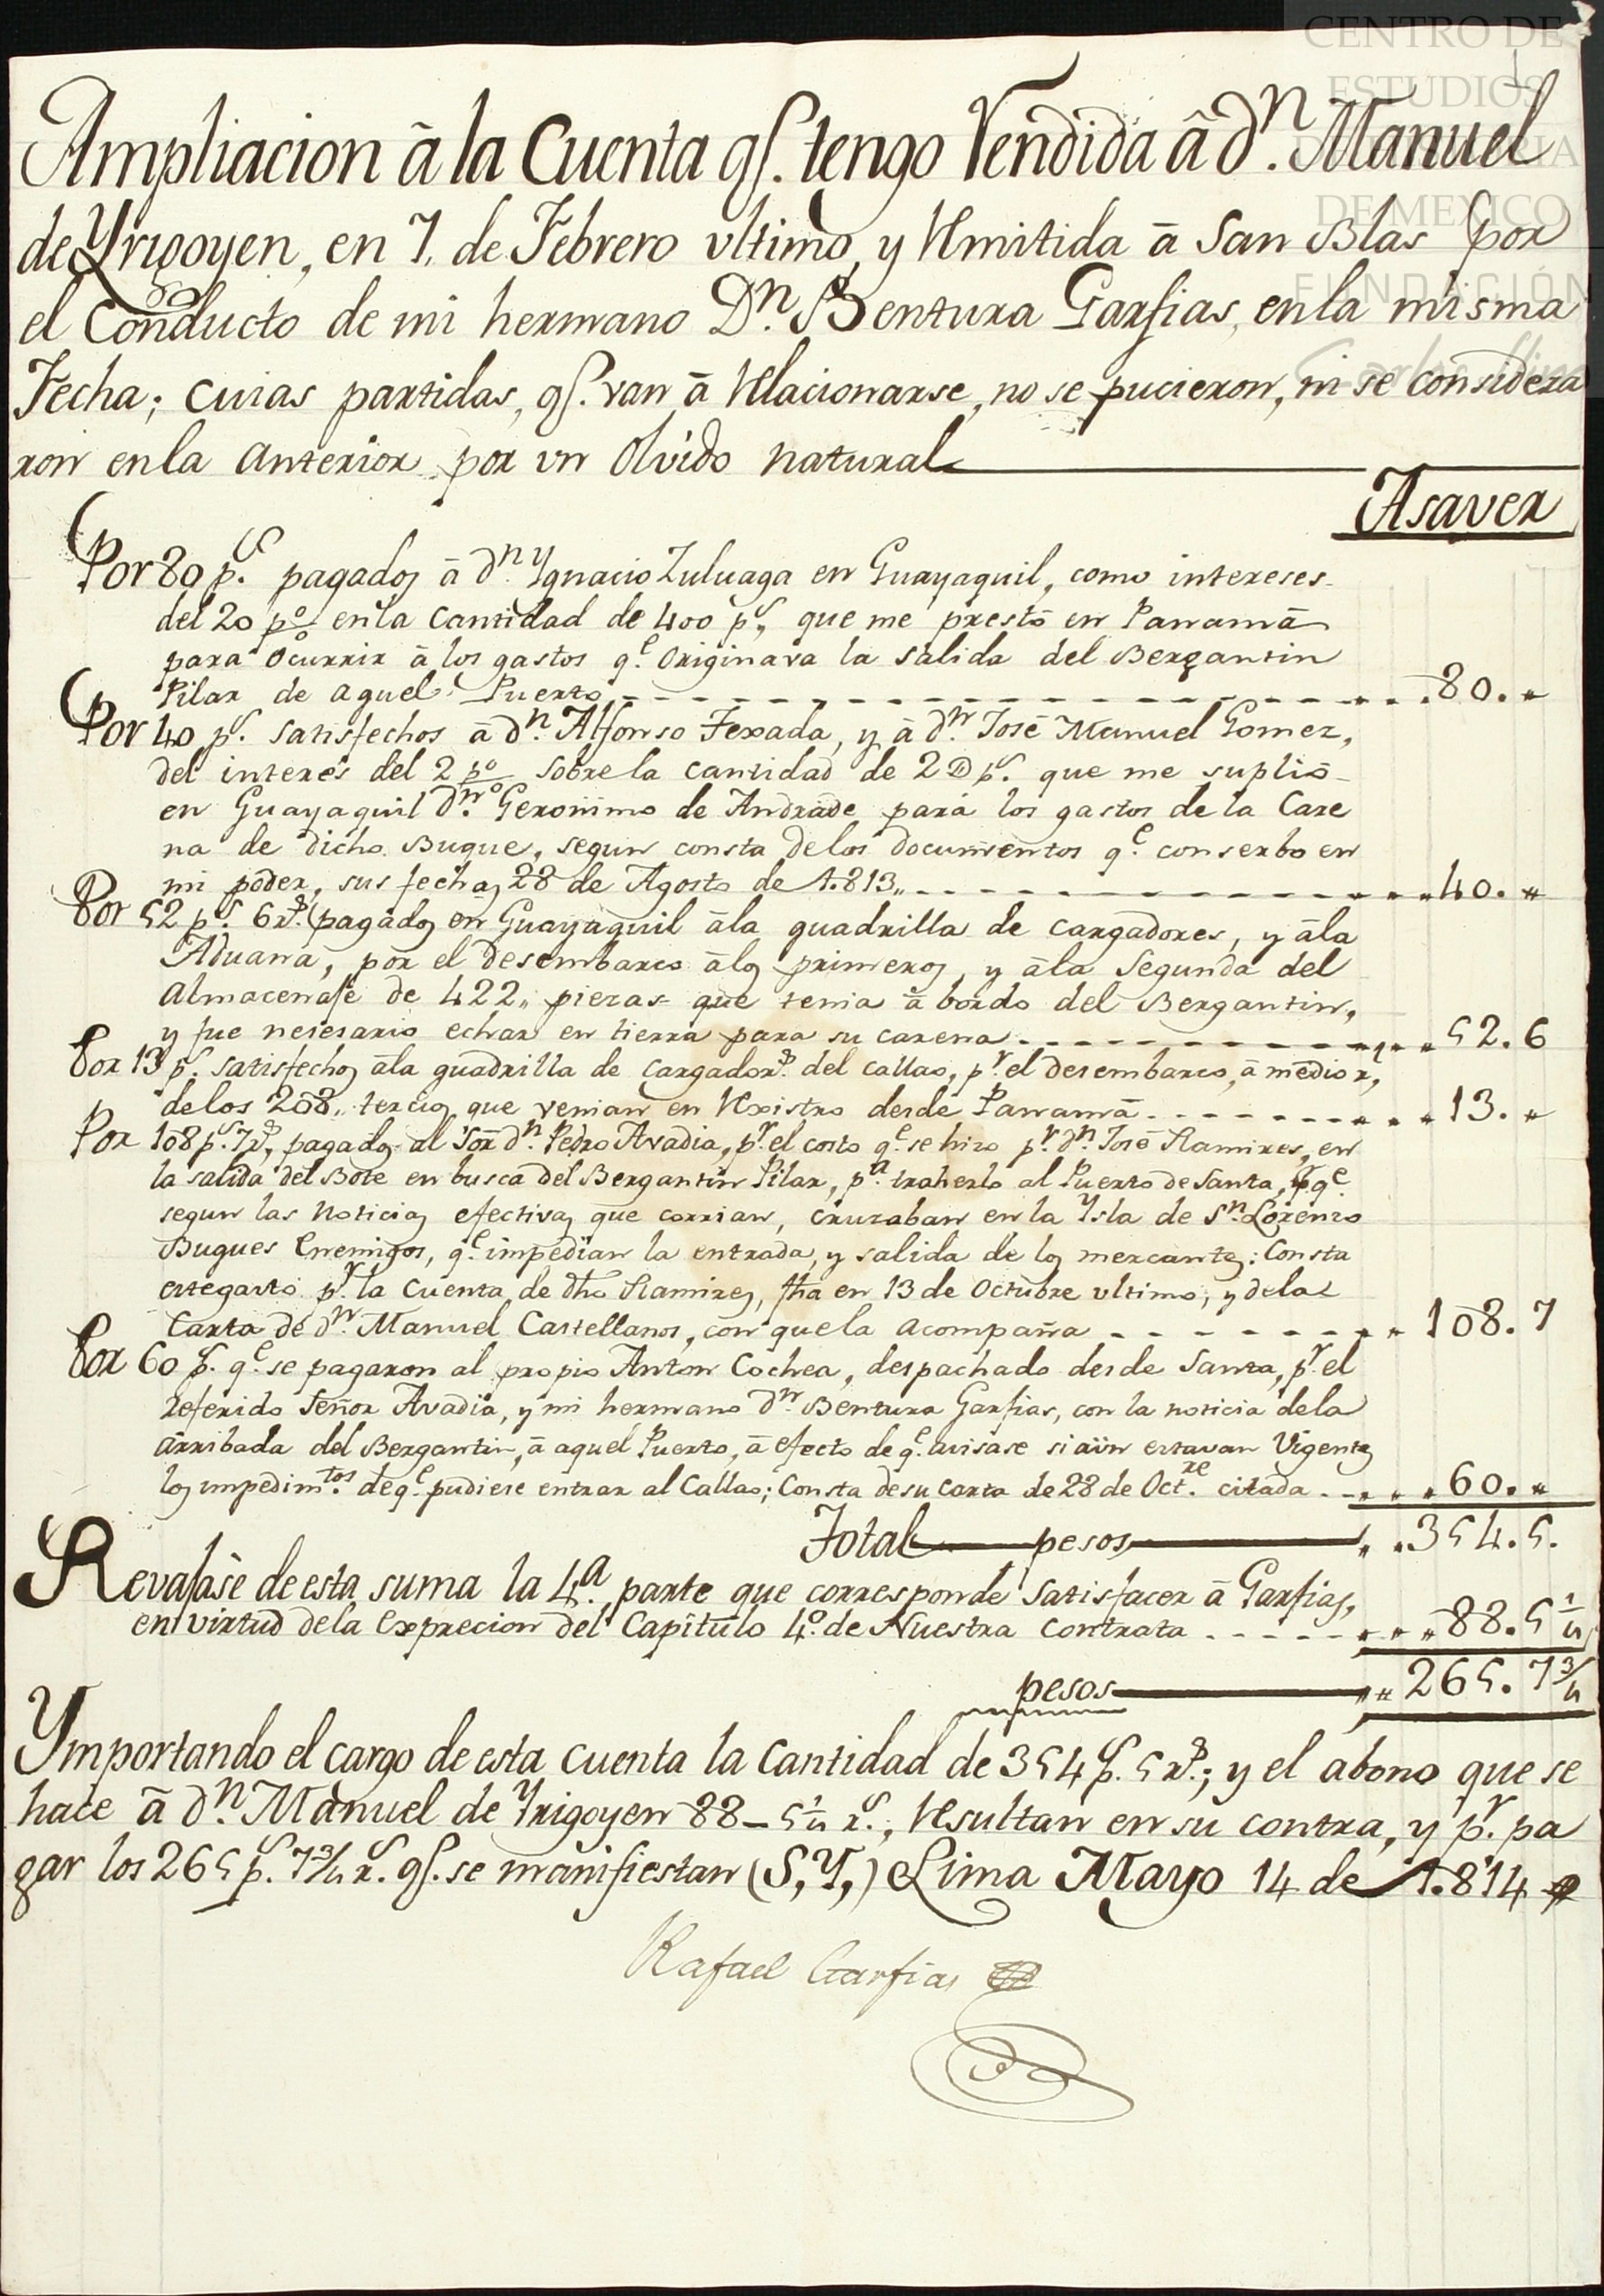 CENTRO DE
ESTUDIOS
DE HISTORIA
DE MEXICO
FUNDACIÓN
Ampliacion â la Cuenta qe. tengo Rendida â dn. Manuel
de Yrigoyen, en 7. de Febrero ultimo, y Remitida â San Blas por
el Conducto de mi hermano Dn. Bentura Garfias, en la misma
Fecha; cuias partidas, qe. van â Relacionarse, no se pucieron, ni se considera
ron en la anterior por un Olvido natural
Asaver
Por 80 ps. pagados â dn. Ygnacio Zuluaga en Guayaquil, como intereses
del 20 p% en la Cantidad de 400 ps, que me prestô en Panamâ
para ocurrir â los gastos qe. Originava la salida del Bergantin
Pilar de aquel Puerto ..80.〃
Por 40 ps. satisfechos â dn. Alfonso Texada, y â dn. José Manuel Gomez,
del interes del 2 p% sobre la cantidad de 2D ps. que me supliô
en Guayaquil dn. Geronimo de Andrade para los gastos de la Care
na de dicho Buque, segun consta de los documentos qe. conserbo en
mi poder, sus fechas 28 de Agosto de 1.813 〃40.〃
Por 52 ps. 6 rs. pagados en Guayaquil âla quadrilla de cargadores, y âla
Aduana, por el desembarco âlos primeros, y âla Segunda del
Almacenaje de 422〃 piezas que tenia â bordo del Bergantin,
y fue nesesario echar en tierra para su carena 〃52.6
Por 13 ps. satisfechos âla quadrilla de cargadors. del callao, pr. el desembarco, â medio r,
de los 208〃 tercios que venian en Rexistro desde Panamâ 〃13.〃
Por 108 ps. 7 rs, pagados al Sor dn. Pedro Avadia, pr. el costo qe. se hizo pr. dn. José Ramires, en
la salida del Bote en busca del Bergantin Pilar, pa. traherlo al Puerto de Santa, pr qe.
segun las noticias efectivas que corrian, cruzaban en la Ysla de Sn. Lorenzo
Buques Enemigos, qe. impedian la entrada, y salida de los mercantes: Consta
estegasto pr. la Cuenta de dho Ramires, fha en 13 de Octubre ultimo, y dela
Carta de dn. Manuel Castellanos, con quela acompaña 〃108.7
Por 60 ps. qe. se pagaron al propio Anton Cochea, despachado desde Santa, pr. el
referido Señor Avadia, y mi hermano dn. Bentura Garfias, con la noticia dela
arribada del Bergantin, â aquel Puerto, â efecto de qe. avisase si aün estavan Vigentes
los impedimtos. de qe. pudiese entrar al Callao; Consta de su Carta de 28 de Octre. citada 〃60.〃
Total pesos 〃354.5.
Revajase de esta suma la 4a. parte que corresponde Satisfacer â Garfias,
en virtud dela exprecion del Capitulo 4o. de Nuestra Contrata 〃88.5 1/4
pesos 〃265.7 3/4
Ymportando el cargo de esta cuenta la cantidad de 354 ps. 5 rs.; y el abono que se
hace â dn. Manuel de Yrigoyen 88-5 1/4 rs., Resultan en su contra, y pr. pa
gar los 265 ps. 7 3/4 rs. qe. se manifiestan (S, Y,) Lima Mayo 14 de 1.814
Rafael Garfias